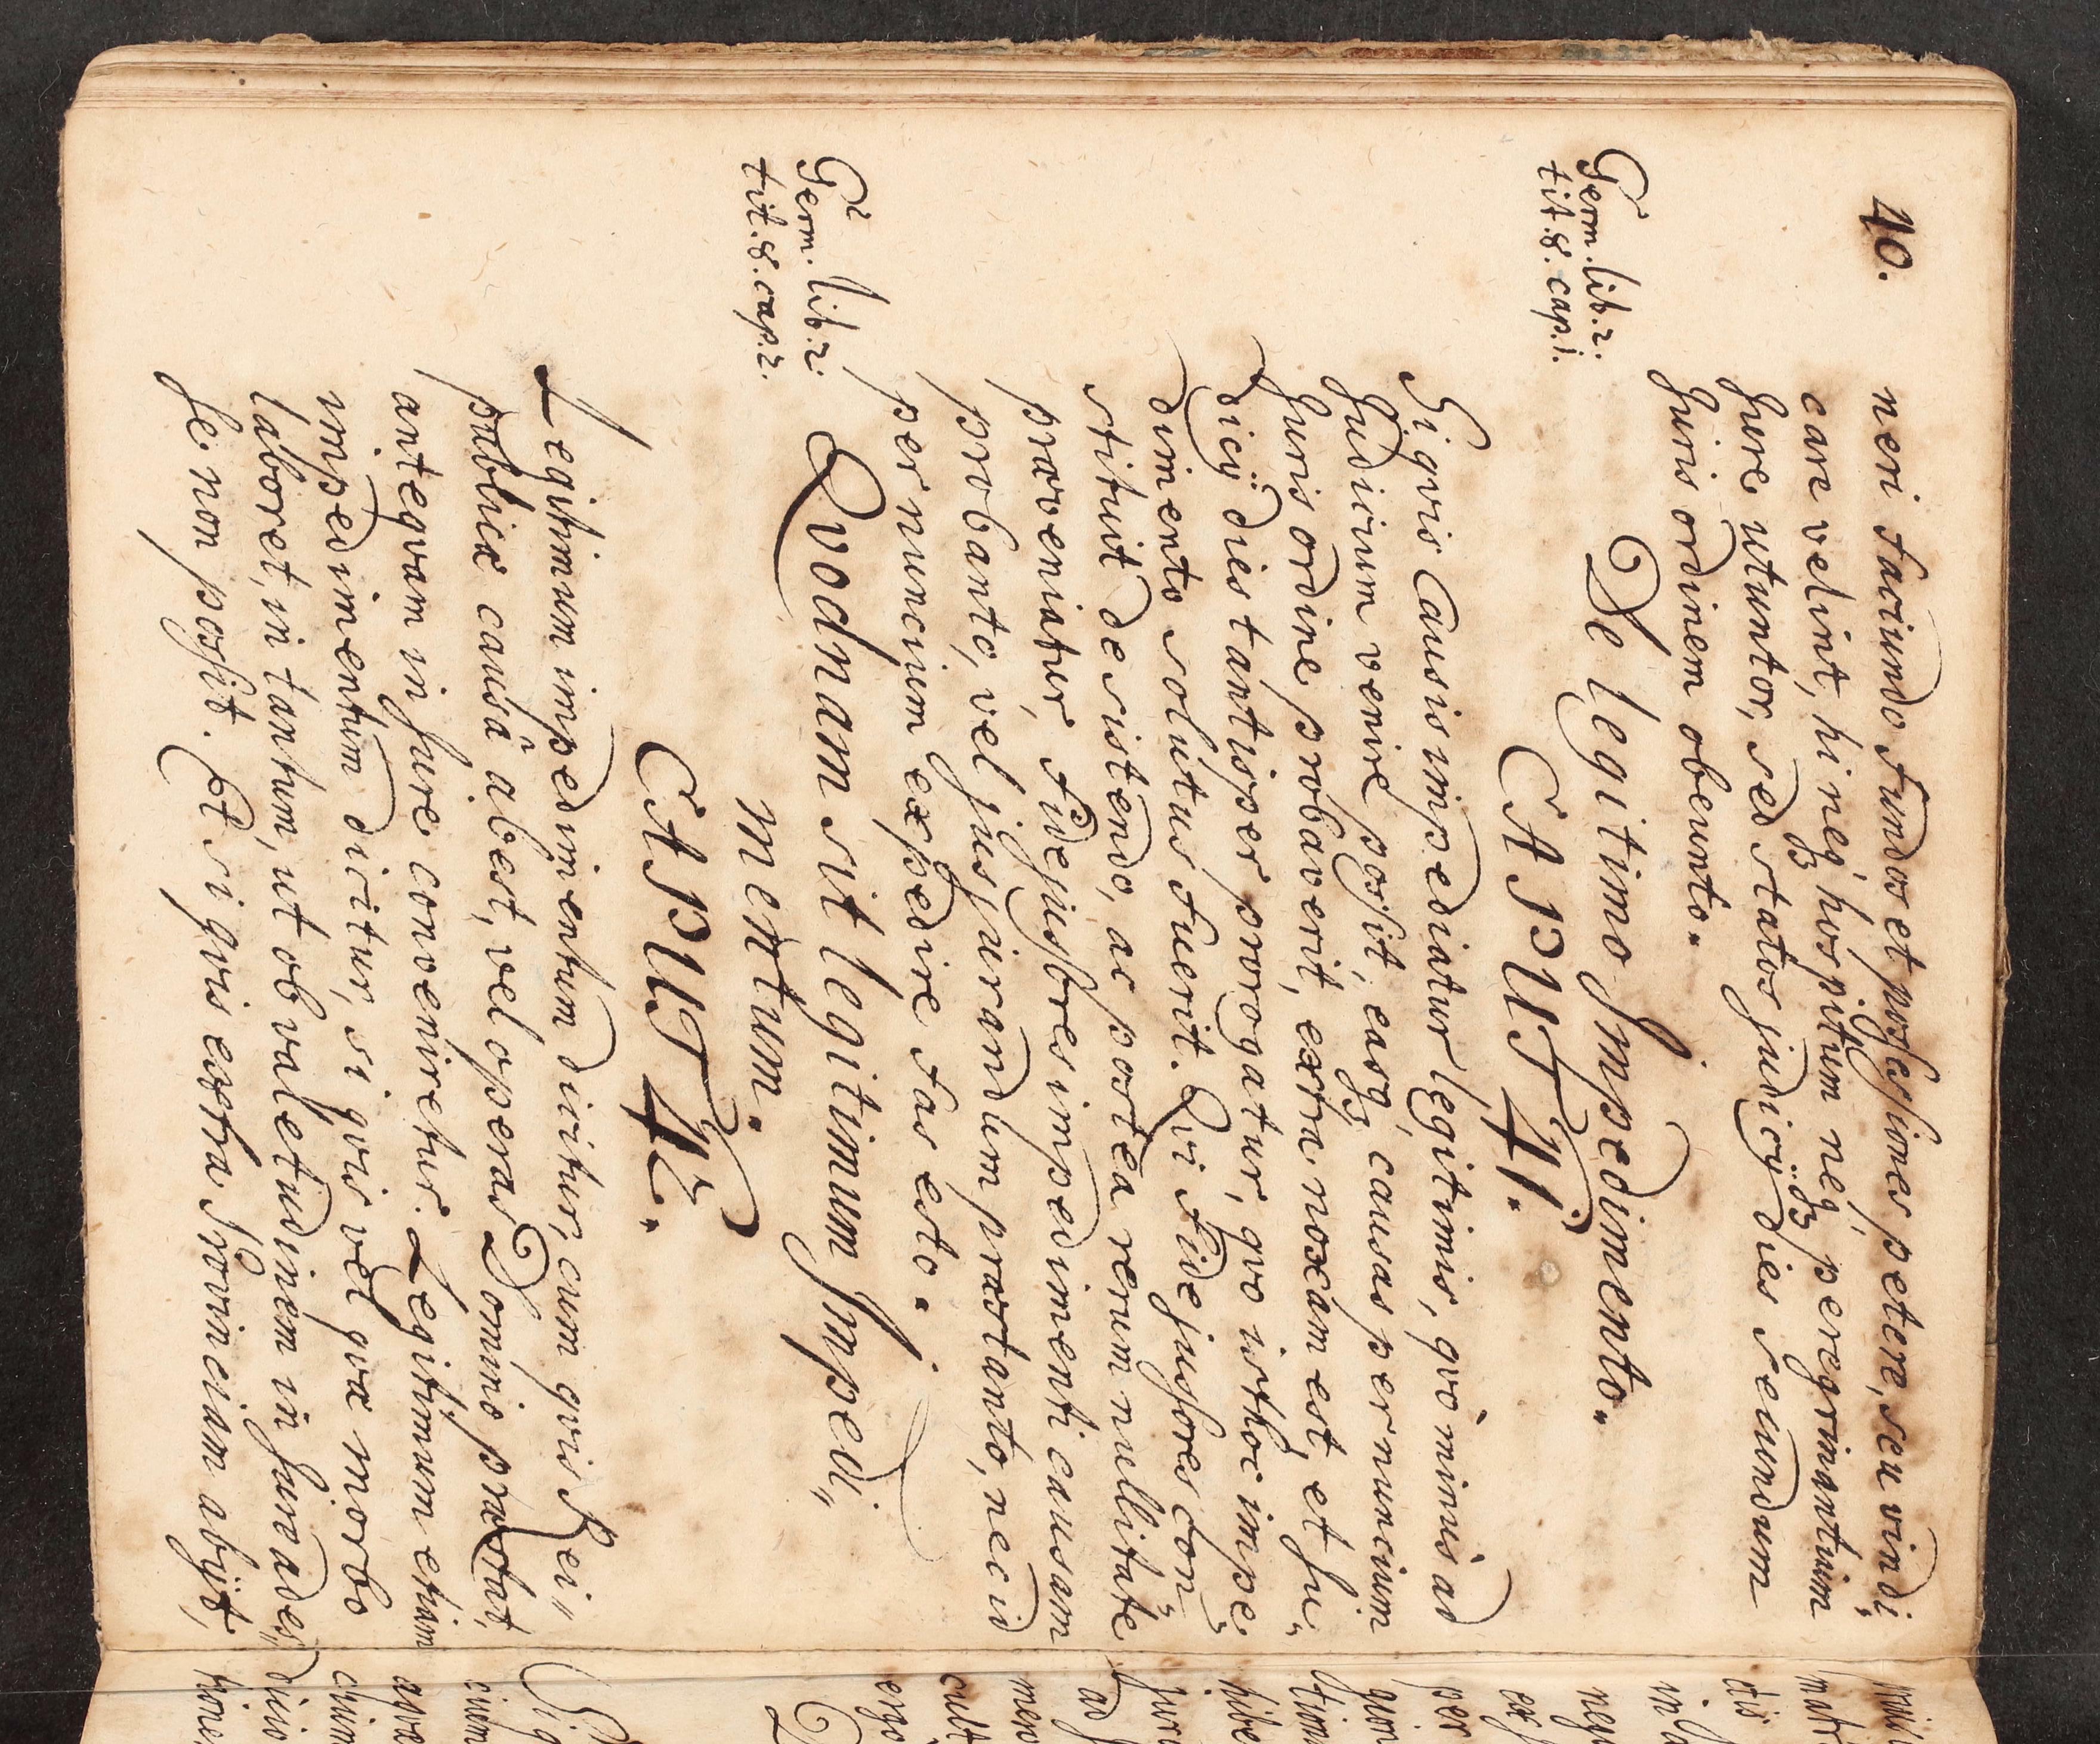 40.
neri faciundo fundos et possessiones petere, seu vindi„
care velint, hi neqȝ hospitum neqȝ peregrinantium
Jure utuntor, sed status judicijqȝ dies secundum
Juris ordinem obeunto.
De legitimo Impedimento.
CAPUT 41.
Germ. lib. 2.
tit. 8. cap. 1.
Si qvis causis impediatur legitimis, qvò minus ad
Judicium venire possit, easqȝ causas per nuncium
Juris ordine probaverit, extra noxam est, et Ju„
dicij dies tantisper prorogatur, qvo usthoc impe„
dimento solutus fuerit. Qvi Fidejussores con„
stituit de sistendo, ac posteà rerum nullitate
præveniatur, Fidejussores impedimenti causam
probanto, vel jusjurandum præstanto, nec id
per nuncium expedire fas esto.
Germ. lib. 2.
tit. 8. cap. 2.
Qvodnam sit legitimum Impedi„
mentum.
CAPUT 42.
Legitimum impedimentum dicitur, cum qvis Rei„
publicæ causâ abest, vel operas Domino præstat,
anteqvam in Jure conveniretur. Legitimum etiam
impedimentum dicitur, si qvis vel qvæ morbo
laboret, in tantum, ut ob valetudinem in Jure ades„
se non possit. Et si qvis extra Provinciam abijt,